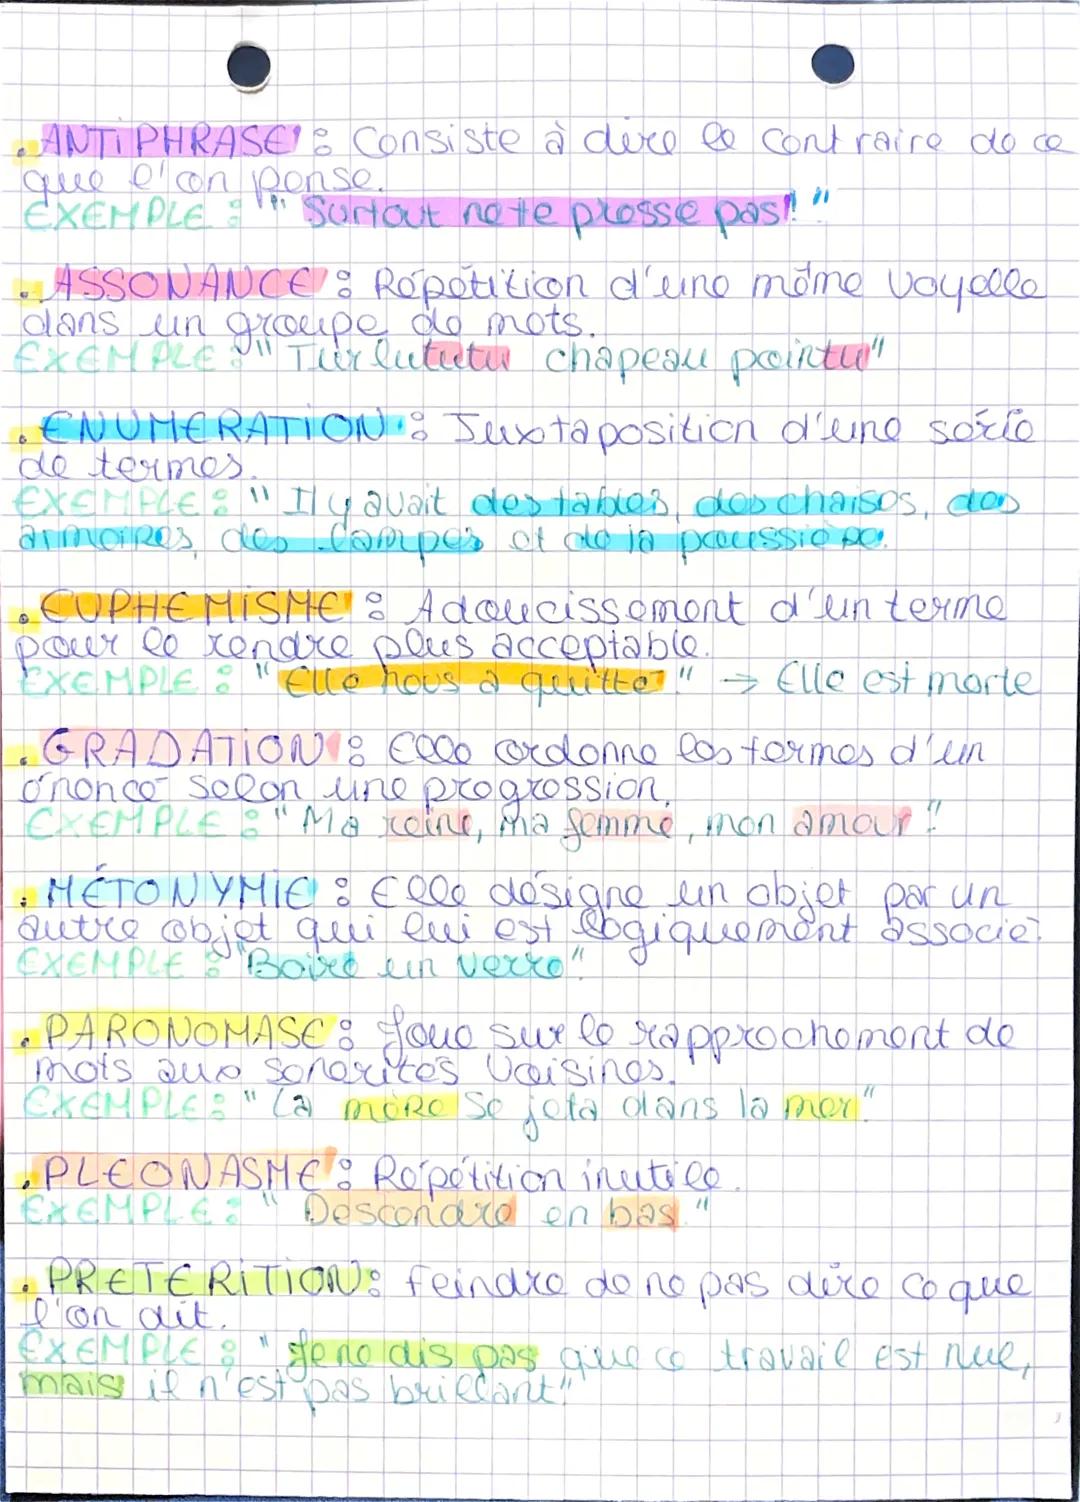 . ANTIPHRASE : Consiste à dire le contraire de ce
que l'on pense.
EXEMPLE : " Surtout ne te presse pas! "
. ASSONANCE : Répétition d'une même voyelle
dans un groupe de mots.
EXEMPLE : " Turlututu chapeau pointu"
. ENUMERATION : Juxtaposition d'une série
de termes.
EXEMPLE : " Il y avait des tables, des chaises, des
armoires, des lampes et de la poussière.
. EUPHEMISME : Adoucissement d'un terme
pour le rendre plus acceptable.
EXEMPLE : " Elle nous a quitté." → Elle est morte
. GRADATION : Elle ordonne les termes d'un
énoncé selon une progression.
EXEMPLE : " Ma reine, ma femme, mon amour".
. MÉTONYMIE : Elle désigne un objet par un
autre objet qui lui est logiquement associé.
EXEMPLE : "Boire un verre"
. PARONOMASE : Joue sur le rapprochement de
mots aux sonorités voisines.
EXEMPLE : " La mère se jeta dans la mer."
. PLEONASME : Répétition inutile.
EXEMPLE : " Descendre en bas."
. PRETERITION : feindre de ne pas dire ce que
l'on dit.
EXEMPLE : " Je ne dis pas que ce travail est nul,
mais il n'est pas brillant"